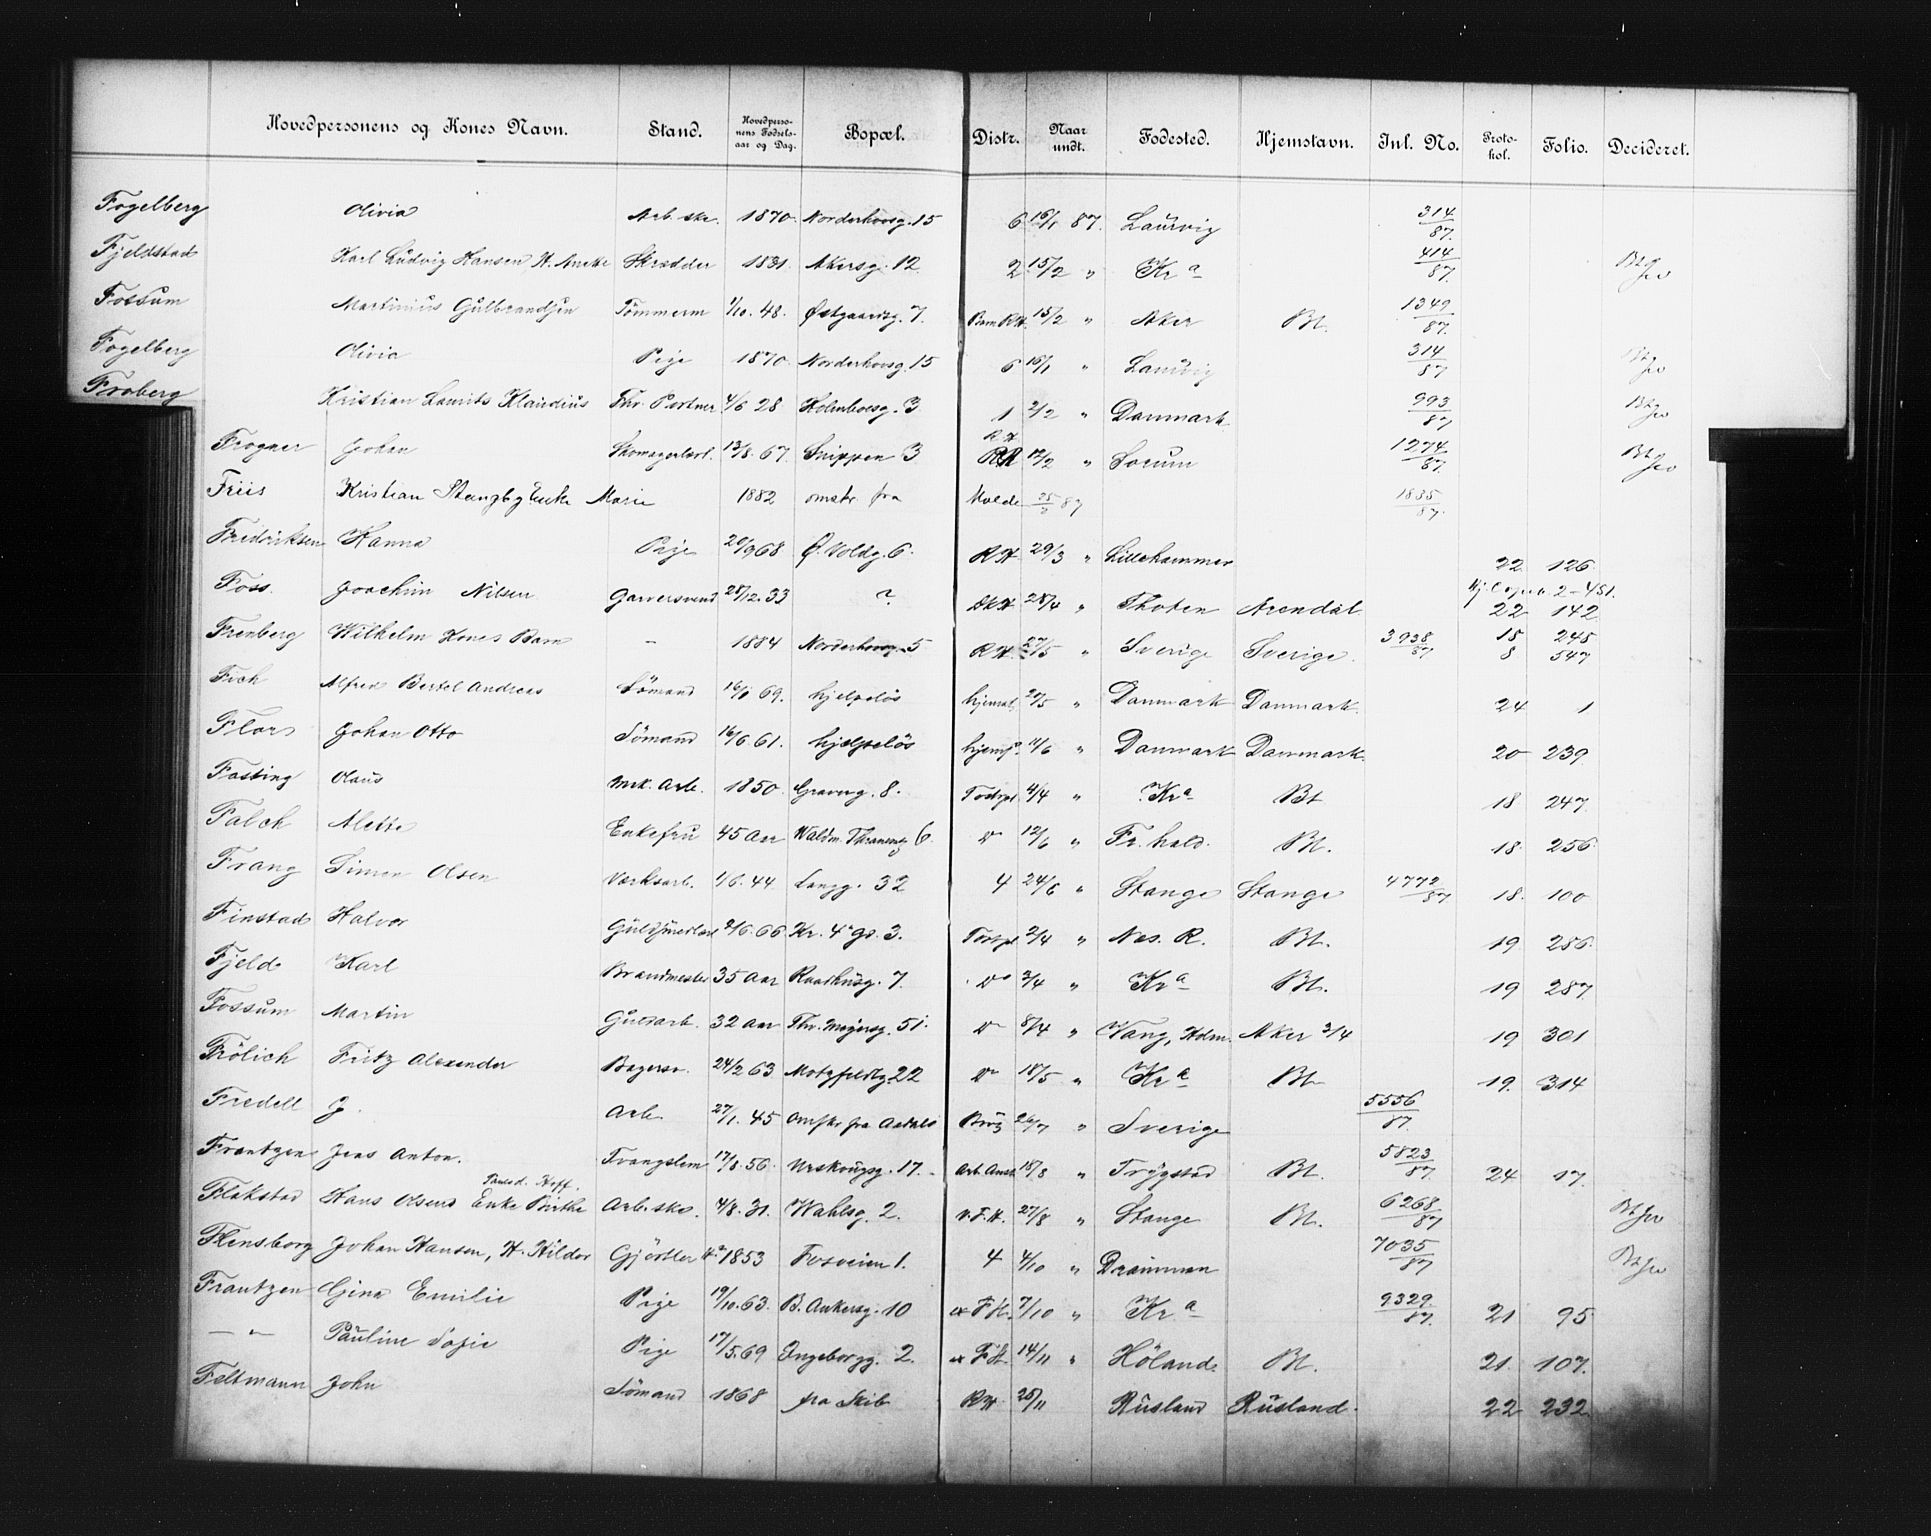 Hovedpersonens og Kones Navn. Stand. Hovedperso-nens Fødsels-aar og Dag. Bopæl. Distr. Naar undt. Fødested. Hjemstavn. Jnl. No. Proto-kol. Folio. Decideret.
Fogelberg Olivia Arb. ske. 1870. Norderhovsg. 15 6 16/1 87. Laurvig 314/87.
Fjeldstad Karl Ludvig Hansen, H. Anette Skrædder 1831. Akersg. 12 2 15/2 " Kr a 414/87.
Fossum Martinius Gulbrandsen Tömmerm 1/10. 48. Østgaardsg. 7. Barn RH. 15/2 " Aker Bt. 1349/87.
Fogelberg Olivia Pige 1870. Norderhovsg. 15 6 16/1 " Laurvig 314/87
Froberg Kristian Laurits Klaudius Thr. Portner 4/6 28 Holmboesg. 3 1 2/2 " Danmark 993/87
Frogner Johan Skomagerlærl. 13/8. 67. Snippen 3 RH 12/2 " Sörum 1274/87.
Friis Kristian Stangbg Enke Marie 1882 omskr. fra Molde 87 1835/87.
Fredriksen Hanna Pige 20/9 68 Ø. Voldg. 6. RH. 29/3 " Lillehammer 22 126.
Foss. Joachim Nilsen Garversvend 28/12. 33 ? 28/4 " Thoten Arendal. 22 142
Frenberg Wilhelm Kones Barn - 1884 Norderhovsg. 5 RH. 27/5 " Sverige Sverige. 3938/87 18 245
8 547
Fich Alfred Bertel Andreas Sömand 16/1 69. hjelpelös hjemst. 20/5 " Danmark Danmark. 24 1
Flor Johan Otto Sömand 16/6. 61. hjælpelös 11/6 " Danmark Danmark. 20 239
Fasting Olaus Mek. Arb. 1850. Graverg. 8. 4/4 " Kr a Bt 18 247.
Falch Alette Enkefru 45 Aar Waldm. Thraneng 6. Do 12/6 " Fr. hald. Bt. 18. 256
Frang Simen Olsen Værksarb. 1/6. 44. Langg. 32 4 24/6 " Stange Stange 4772/87 18. 100
Finstad Halvor Guldsmedlærl 9/6. 66. Kr. 4 gd. 3. 2/4 " Nes. R. Bt. 19 256.
Fjeld Karl Brandmester 35 Aar Raadhusg. 7. Do 2/4 " Kr a Bt. 19 287.
Fossum Martin Gulvarb. 32 Aar Thv. Meyersg. 51. Do 8/4 " Vang, Hdm. Aker 3/4 19 301
Frölich Fritz Alexander Bagersv. 24/2 63 Motzfeldtg 22 Do 18/5 " Kr a Bt 19. 314
Fredell J. Arb. 27/1. 45 Omskr. fra Aadals Brug 26/7 " Sverige 5556/87.
Frantzen Jens Anton. Tvangslem 17/8. 56. Urskougsg. 17. Arb. Anst. 18/8 " Trygstad Bt. 5823/87. 24 17.
Flakstad Hans Olsens Enke Birthe Paulsd. Hoff. Arb. ske. 4/8. 31. Wahlsg. 2. v. F. H. 27/8 " Stange Bt. 6268/87
Flensborg Johan Hansen, H. Hildor Gjörtler 1853 Fosveien 1. 4 4/10 " Drammen 7035/87
Frantzen Gina Emilie Pige 19/10. 63. B. Ankersg. 10 F H. 7/10 " Kr a 9329/87. 21 95
— " — Pauline Sofie Pige 17/5. 69 Engeborgg. 2. F H. 14/11 " Höland. Bt. 21. 107.
Feltmann John Sömand 1868 fra Skib RH 25/11 Rusland Rusland. 22 232